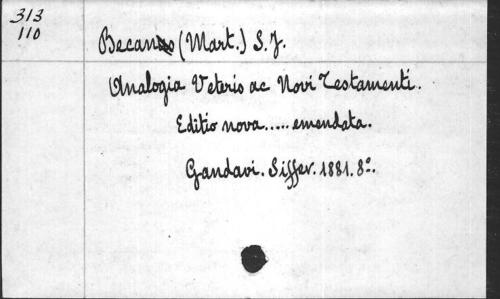 313
110
Becanus (Mart.) S.J.
Analogia Veteris ac Novi Testamenti.
Editio nova..... emendata.
Gandavi. Siffer. 1881. 8º.